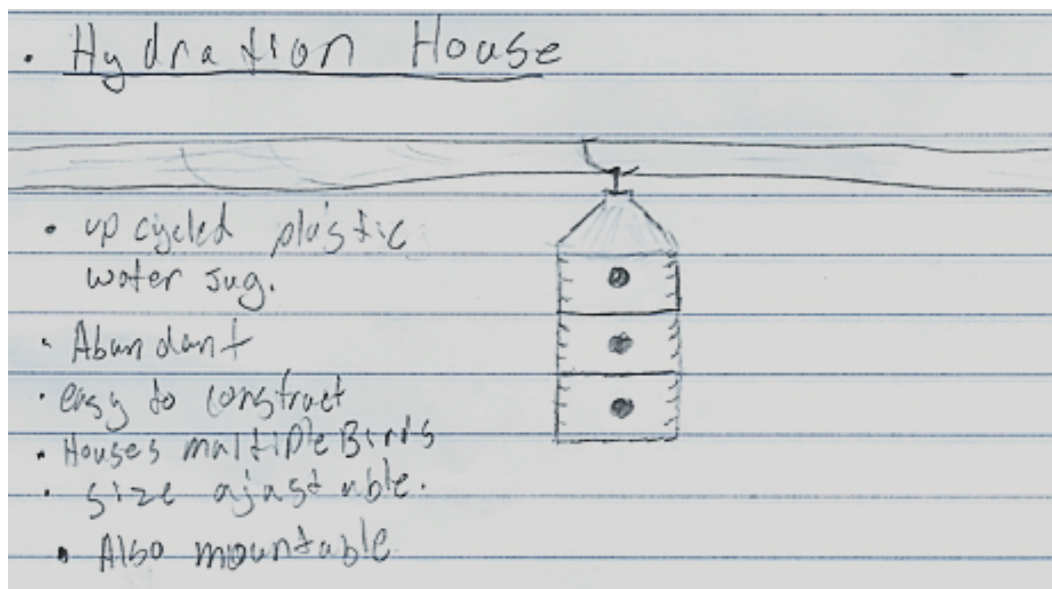 • Hydration House
• upcycled plastic
water jug.
• Abundant
• easy to construct
• Houses multiple Birds
• size ajustable.
• Also mountable